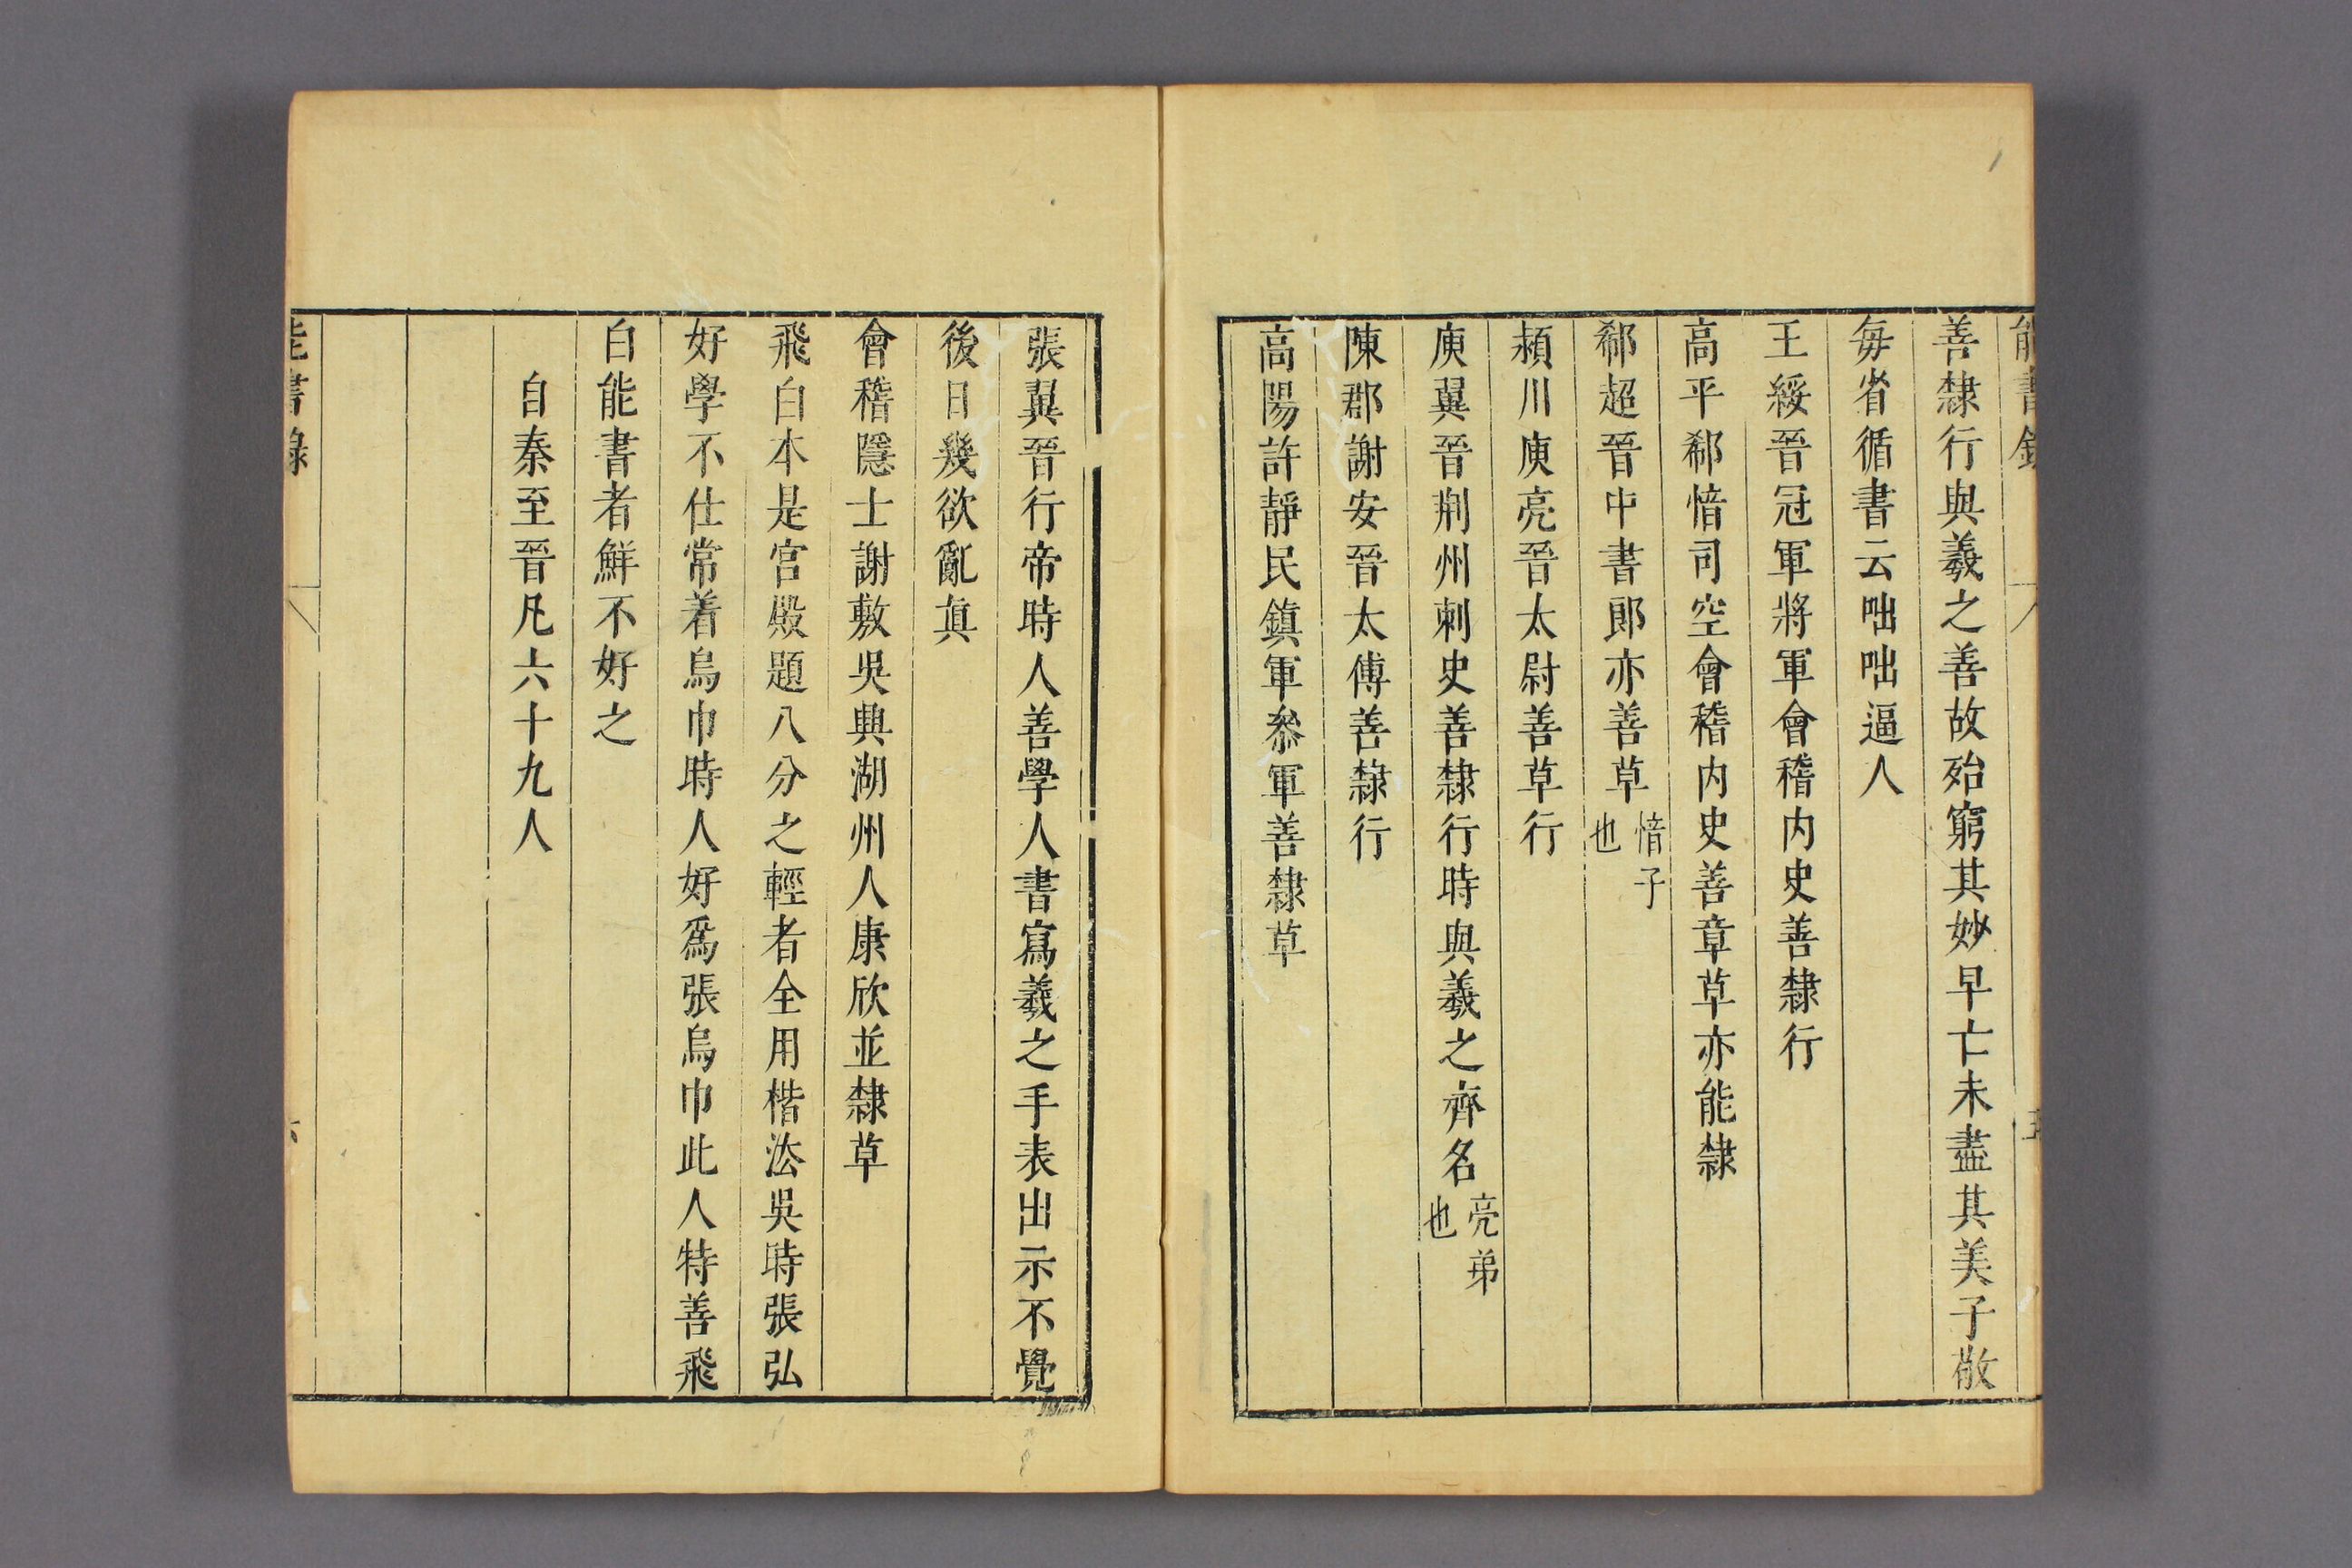 能書錄
善隸行與羲之善故殆窮其妙早亡未盡其美子敬
每省循書云咄咄逼人
王綏晉冠軍將軍會稽内史善隸行
高平郗愔司空會稽内史善章草亦能隸
郗超晉中書郎亦善草愔子也
潁川庾亮晉太尉善草行
庾翼晉荆州刺史善隸行時與羲之齊名亮弟也
陳郡謝安晉太傅善隸行
高陽許靜民鎮軍叅軍善隸草
張翼晉行帝時人善學人書寫羲之手表出示不覺
後日幾欲亂真
會稽隱士謝敷吳興湖州人康欣並隸草
飛白本是宫殿題八分之輕者全用楷法吳時張弘
好學不仕常着烏巾時人好爲張烏巾此人特善飛
白能書者鮮不好之
自秦至晉凡六十九人
能書錄